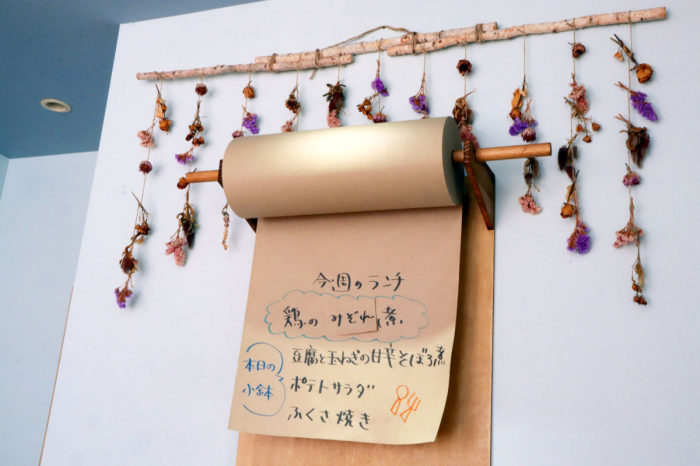 今週のランチ
鶏のみぞれ煮
本日の小鉢
豆腐と玉ねぎの甘辛そぼろ煮
ポテトサラダ
ふくさ焼き